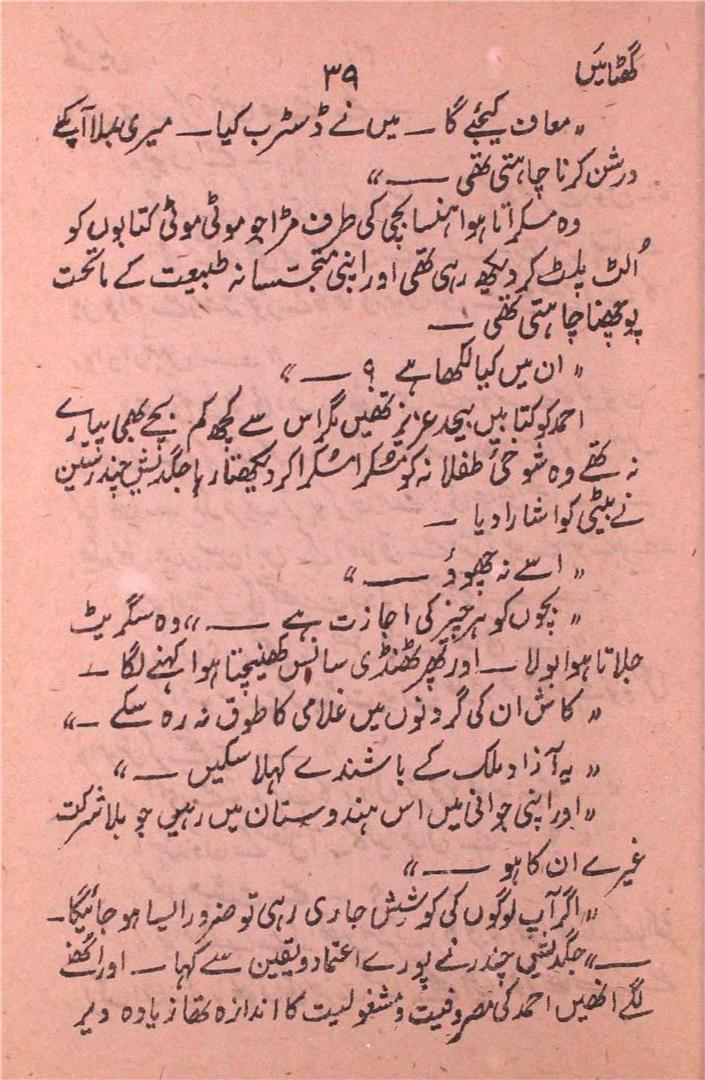 گھٹائیں
۳۹
"معاف کیجئے گا ۔ میں نے ڈسٹرب کیا ۔ میری بملا آپکے
درشن کرنا چاہتی تھی ۔"
وہ مسکراتا ہوا ہنسا بچی کی طرف مڑا جو موٹی موٹی کتابوں کو
اُلٹ پلٹ کر دیکھ رہی تھی اور اپنی متجسسانہ طبیعت کے ماتحت
پوچھنا چاہتی تھی ۔
"ان میں کیا لکھا ہے ؟ ۔"
احمد کو کتابیں بیحد عزیز تھیں مگر اس سے کچھ کم بچے بھی پیارے
نہ تھے وہ شوخیٔ طفلانہ کو مُسکرا مُسکرا کر دیکھتا رہا جگدیش چندر سین
نے بیٹی کو اشارا دیا ۔
"اسے نہ چھوؤ ۔"
"بچوں کو ہر چیز کی اجازت ہے ۔" وہ سگریٹ
جلاتا ہوا بولا ۔ اور پھر ٹھنڈی سانس کھینچتا ہوا کہنے لگا ۔
"کاش ان کی گردنوں میں غلامی کا طوق نہ رہ سکے ۔"
"یہ آزاد ملک کے باشندے کہلا سکیں ۔"
"اور اپنی جوانی میں اس ہندوستان میں رہیں جو بلا شرکت
غیرے ان کا ہو ۔"
"اگر آپ لوگوں کی کوشش جاری رہی تو ضرور ایسا ہو جائیگا ۔
۔" جگدیش چندر نے پورے اعتماد و یقین سے کہا ۔ اور اٹھنے
لگے انھیں احمد کی مصروفیت و مشغولیت کا اندازہ تھا زیادہ دیر